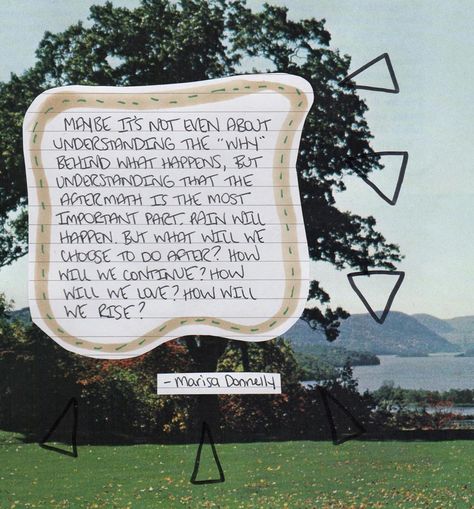 MAYBE IT'S NOT EVEN ABOUT
UNDERSTANDING THE "WHY"
BEHIND WHAT HAPPENS, BUT
UNDERSTANDING THAT THE
AFTERMATH IS THE MOST
IMPORTANT PART. RAIN WILL
HAPPEN. BUT WHAT WILL WE
CHOOSE TO DO AFTER? HOW
WILL WE CONTINUE? HOW
WILL WE LOVE? HOW WILL
WE RISE?
- Marisa Donnelly